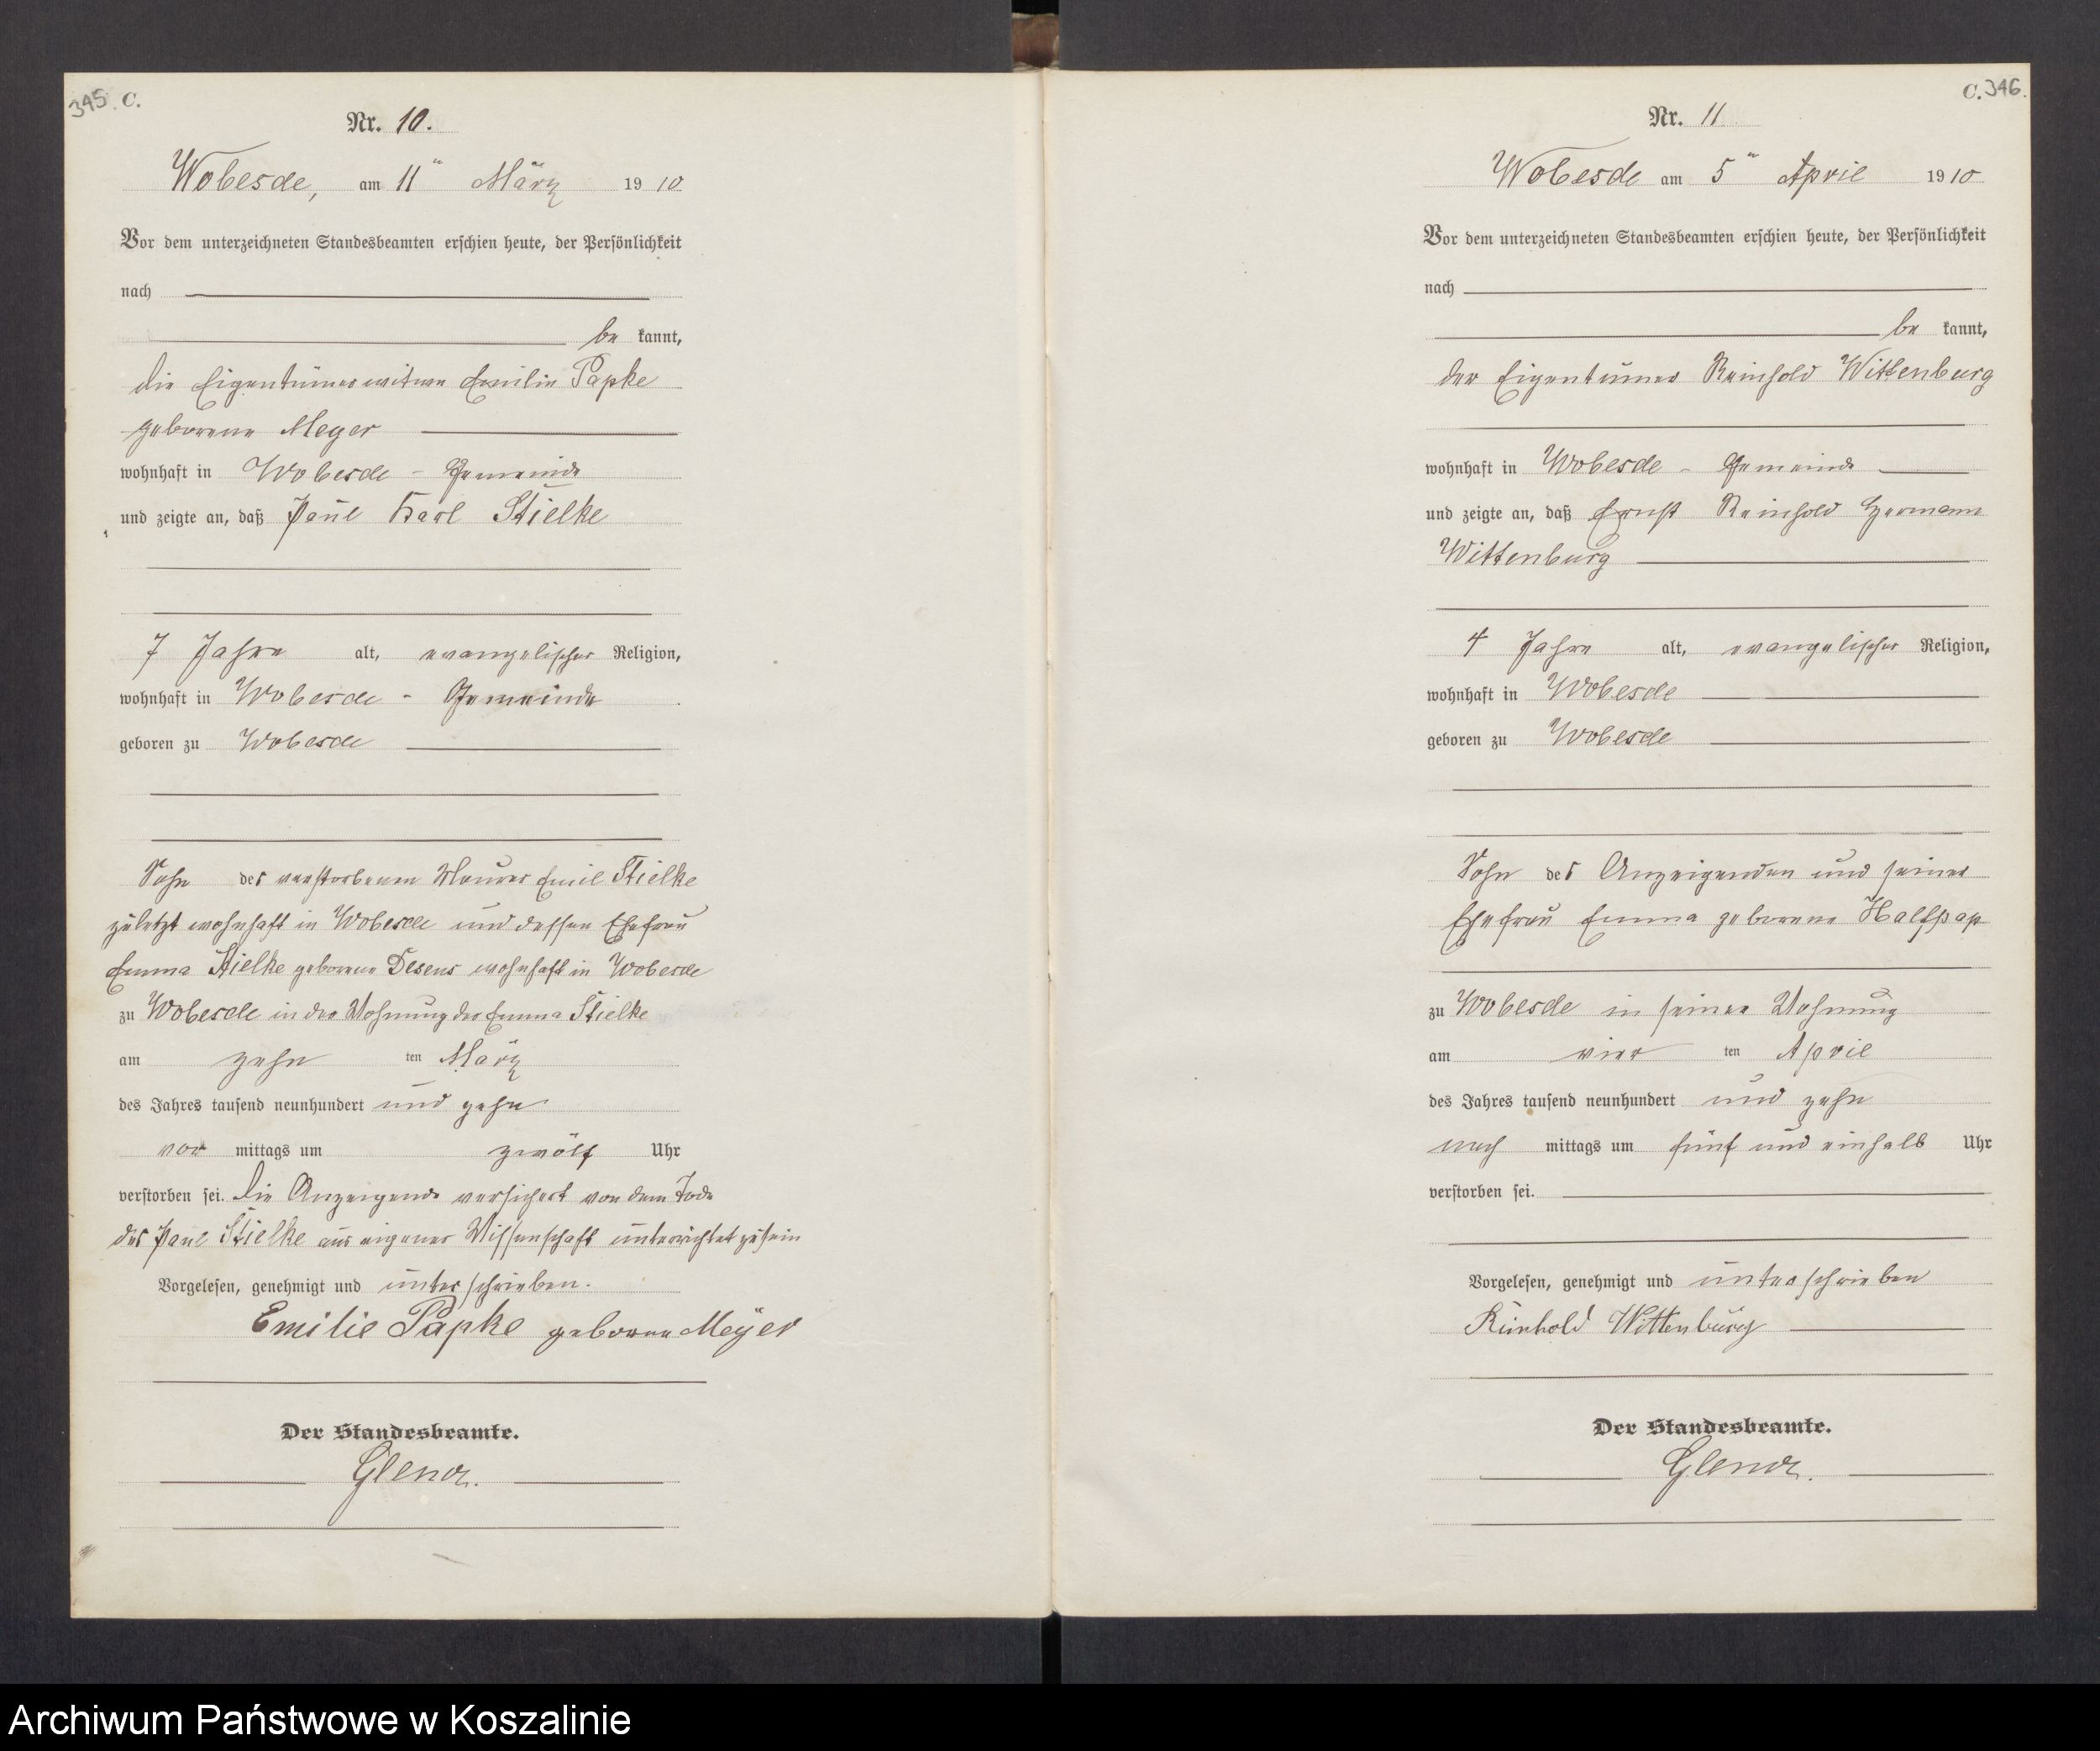 345. C.
Nr. 10.
Wobesde, am 11ten März 1910
Vor dem unterzeichneten Standesbeamten erschien heute, der Persönlichkeit
nach
be kannt,
die Eigentümerwitwe Emilie Papke
geborene Meyer
wohnhaft in Wobesde - Gemeinde
und zeigte an, daß Paul Karl Stielke
7 Jahre alt, evangelischer Religion,
wohnhaft in Wobesde - Gemeinde
geboren zu Wobesde
Sohn des verstorbenen Maurer Emil Stielke
zuletzt wohnhaft in Wobesde und dessen Ehefrau
Emma Stielke geborene Desens wohnhaft in Wobesde
zu Wobesde in der Wohnung der Emma Stielke
am zehn ten März
des Jahres tausend neunhundert und zehn
vor mittags um zwölf Uhr
verstorben sei. Die Anzeigende versichert von dem Tode
des Paul Stielke aus eigener Wissenschaft unterrichtet zu sein
Vorgelesen, genehmigt und unterschrieben.
Emilie Papke geborene Meÿer
Der Standesbeamte.
C. 346.
Nr. 11
Wobesde am 5ten April 1910
Vor dem unterzeichneten Standesbeamten erschien heute, der Persönlichkeit
nach
be kannt,
der Eigentümer Reinhold Wittenburg
wohnhaft in Wobesde - Gemeinde
und zeigte an, daß Ernst Reinhold Hermann
Wittenburg
4 Jahre alt, evangelischer Religion,
wohnhaft in Wobesde
geboren zu Wobesde
Sohn des Anzeigenden und seiner
Ehefrau Emma geborene Halfpap
zu Wobesde in seiner Wohnung
am vier ten April
des Jahres tausend neunhundert und zehn
nach mittags um fünf und einhalb Uhr
verstorben sei.
Vorgelesen, genehmigt und unterschrieben
Reinhold Wittenburg
Der Standesbeamte.
Archiwum Państwowe w Koszalinie